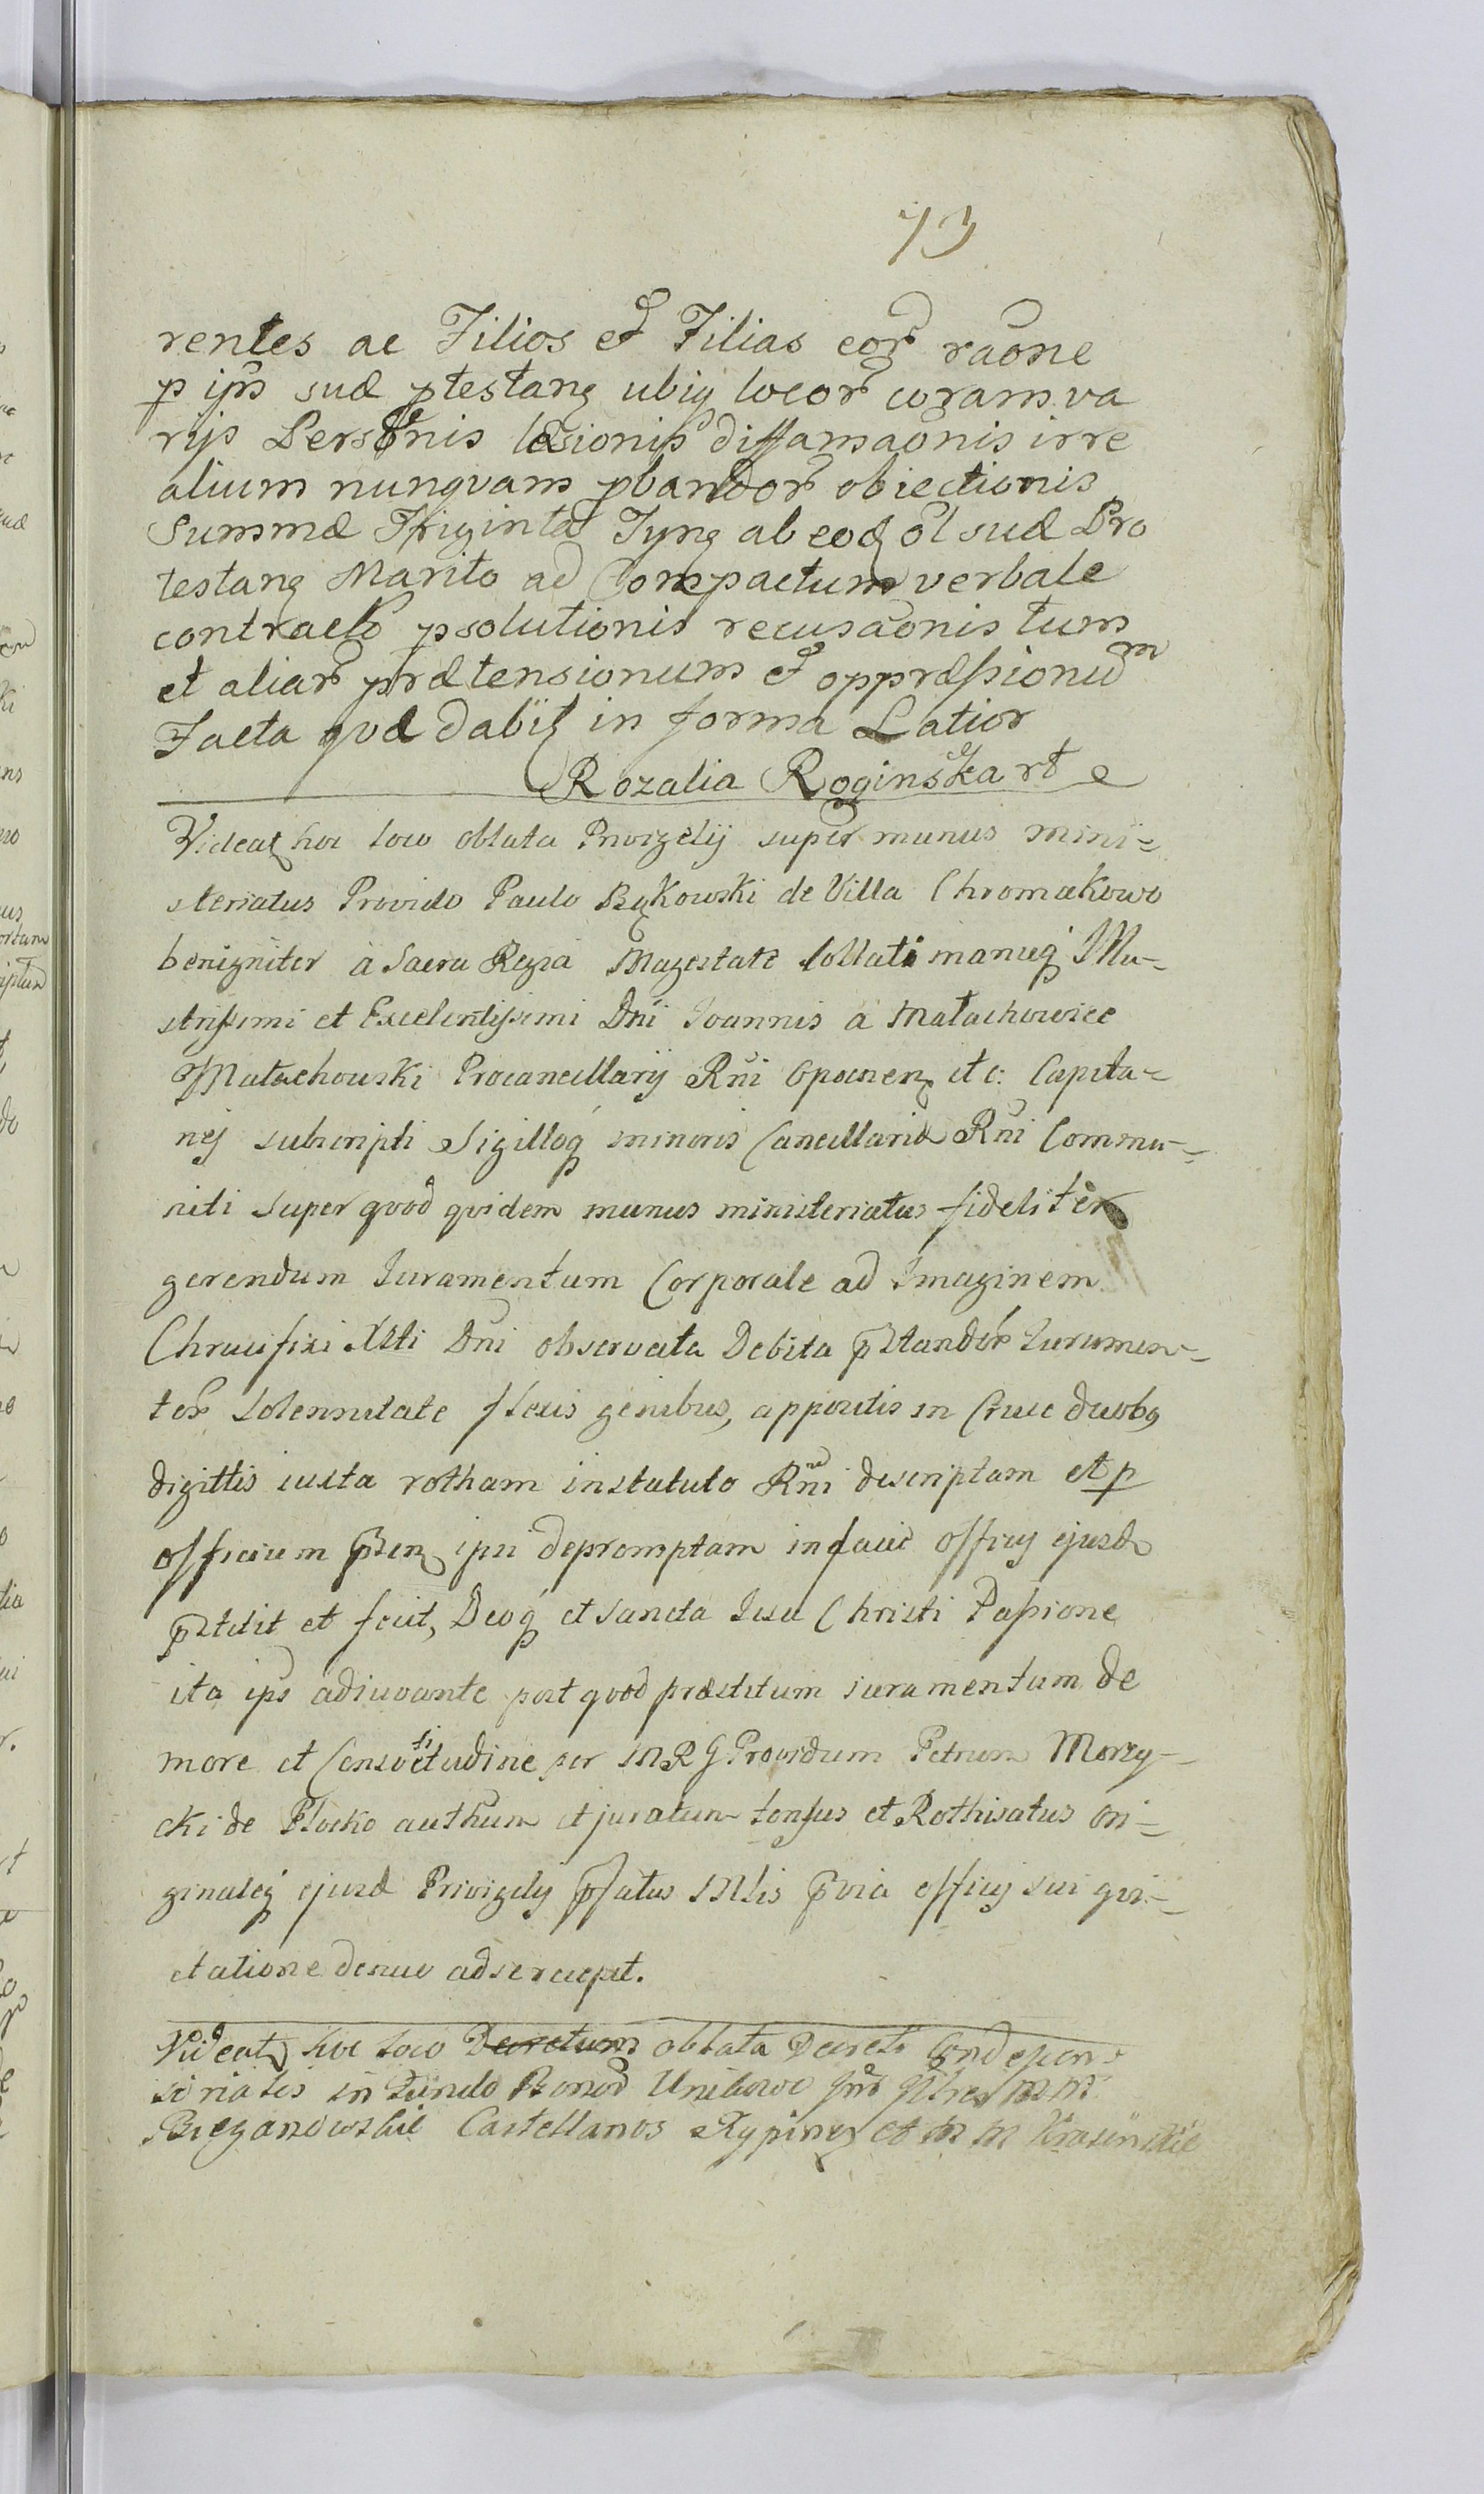 73
rentes ac Filios et Filias eor raõne
p ips suæ ptestanz ubiq locor coram va
rijs Personis læsionis diffamaõnis irre
alium nunqvam pbandor obiectionis
Summæ Triginta Tynz ab eod ol suæ Pro
testanz Marito ad Compactum verbale
contracto psolutionis recusaõnis tum
et aliar prætensionum et oppræssionum
Facta qvæ dabit in forma Latior
Rozalia Roginska rt e
Videat hoc loco oblata Priwizelij super munus mini=
steriatus Provido Paulo Bąkowski de Villa Chromakowo
benigniter à Sacra Regia Magestate Collati manuq Illu=
strissimi et Excelentissimi Dni Joannis à Małachowice
Małachowski Procancellarij Rni Opocnen etc: Capita=
nej subscripti Sigilloq minoris Cancellariæ Rni Commu=
niti super qvod qvidem munus ministeriatus fideliter
gerendum Iuramentum Corporale ad Imaginem
Chrucifixi Xti Dni observata Debita pstandor Iuramen=
tor Solennitate flexis genibus, appositis in Cruce duobq
digittis iuxta rotham in statuto Rni descriptam et p
officium psen ipsi depromptam in facie officij ejusd
pstitit et fecit, Deoq et Sancta Jesu Christi Passione
ita ips adiuvante post qvod præstitum iuramentum de
more et Consvetudine per MRG Providum Petrum Morzy=
cki de Płocko authum et juratum tonsus et Rothisatus ori=
ginaleq ejusd Privigelij pfatus Mlis pvia officij sui qvi=
etatione denuo ad se recepit.
Videat hoc loco Decretum oblata Decreti Condescen
soriales in Fundo Bonor Unikowo
Biezanowskie Castellanos Rypinen et M M Krasinskie